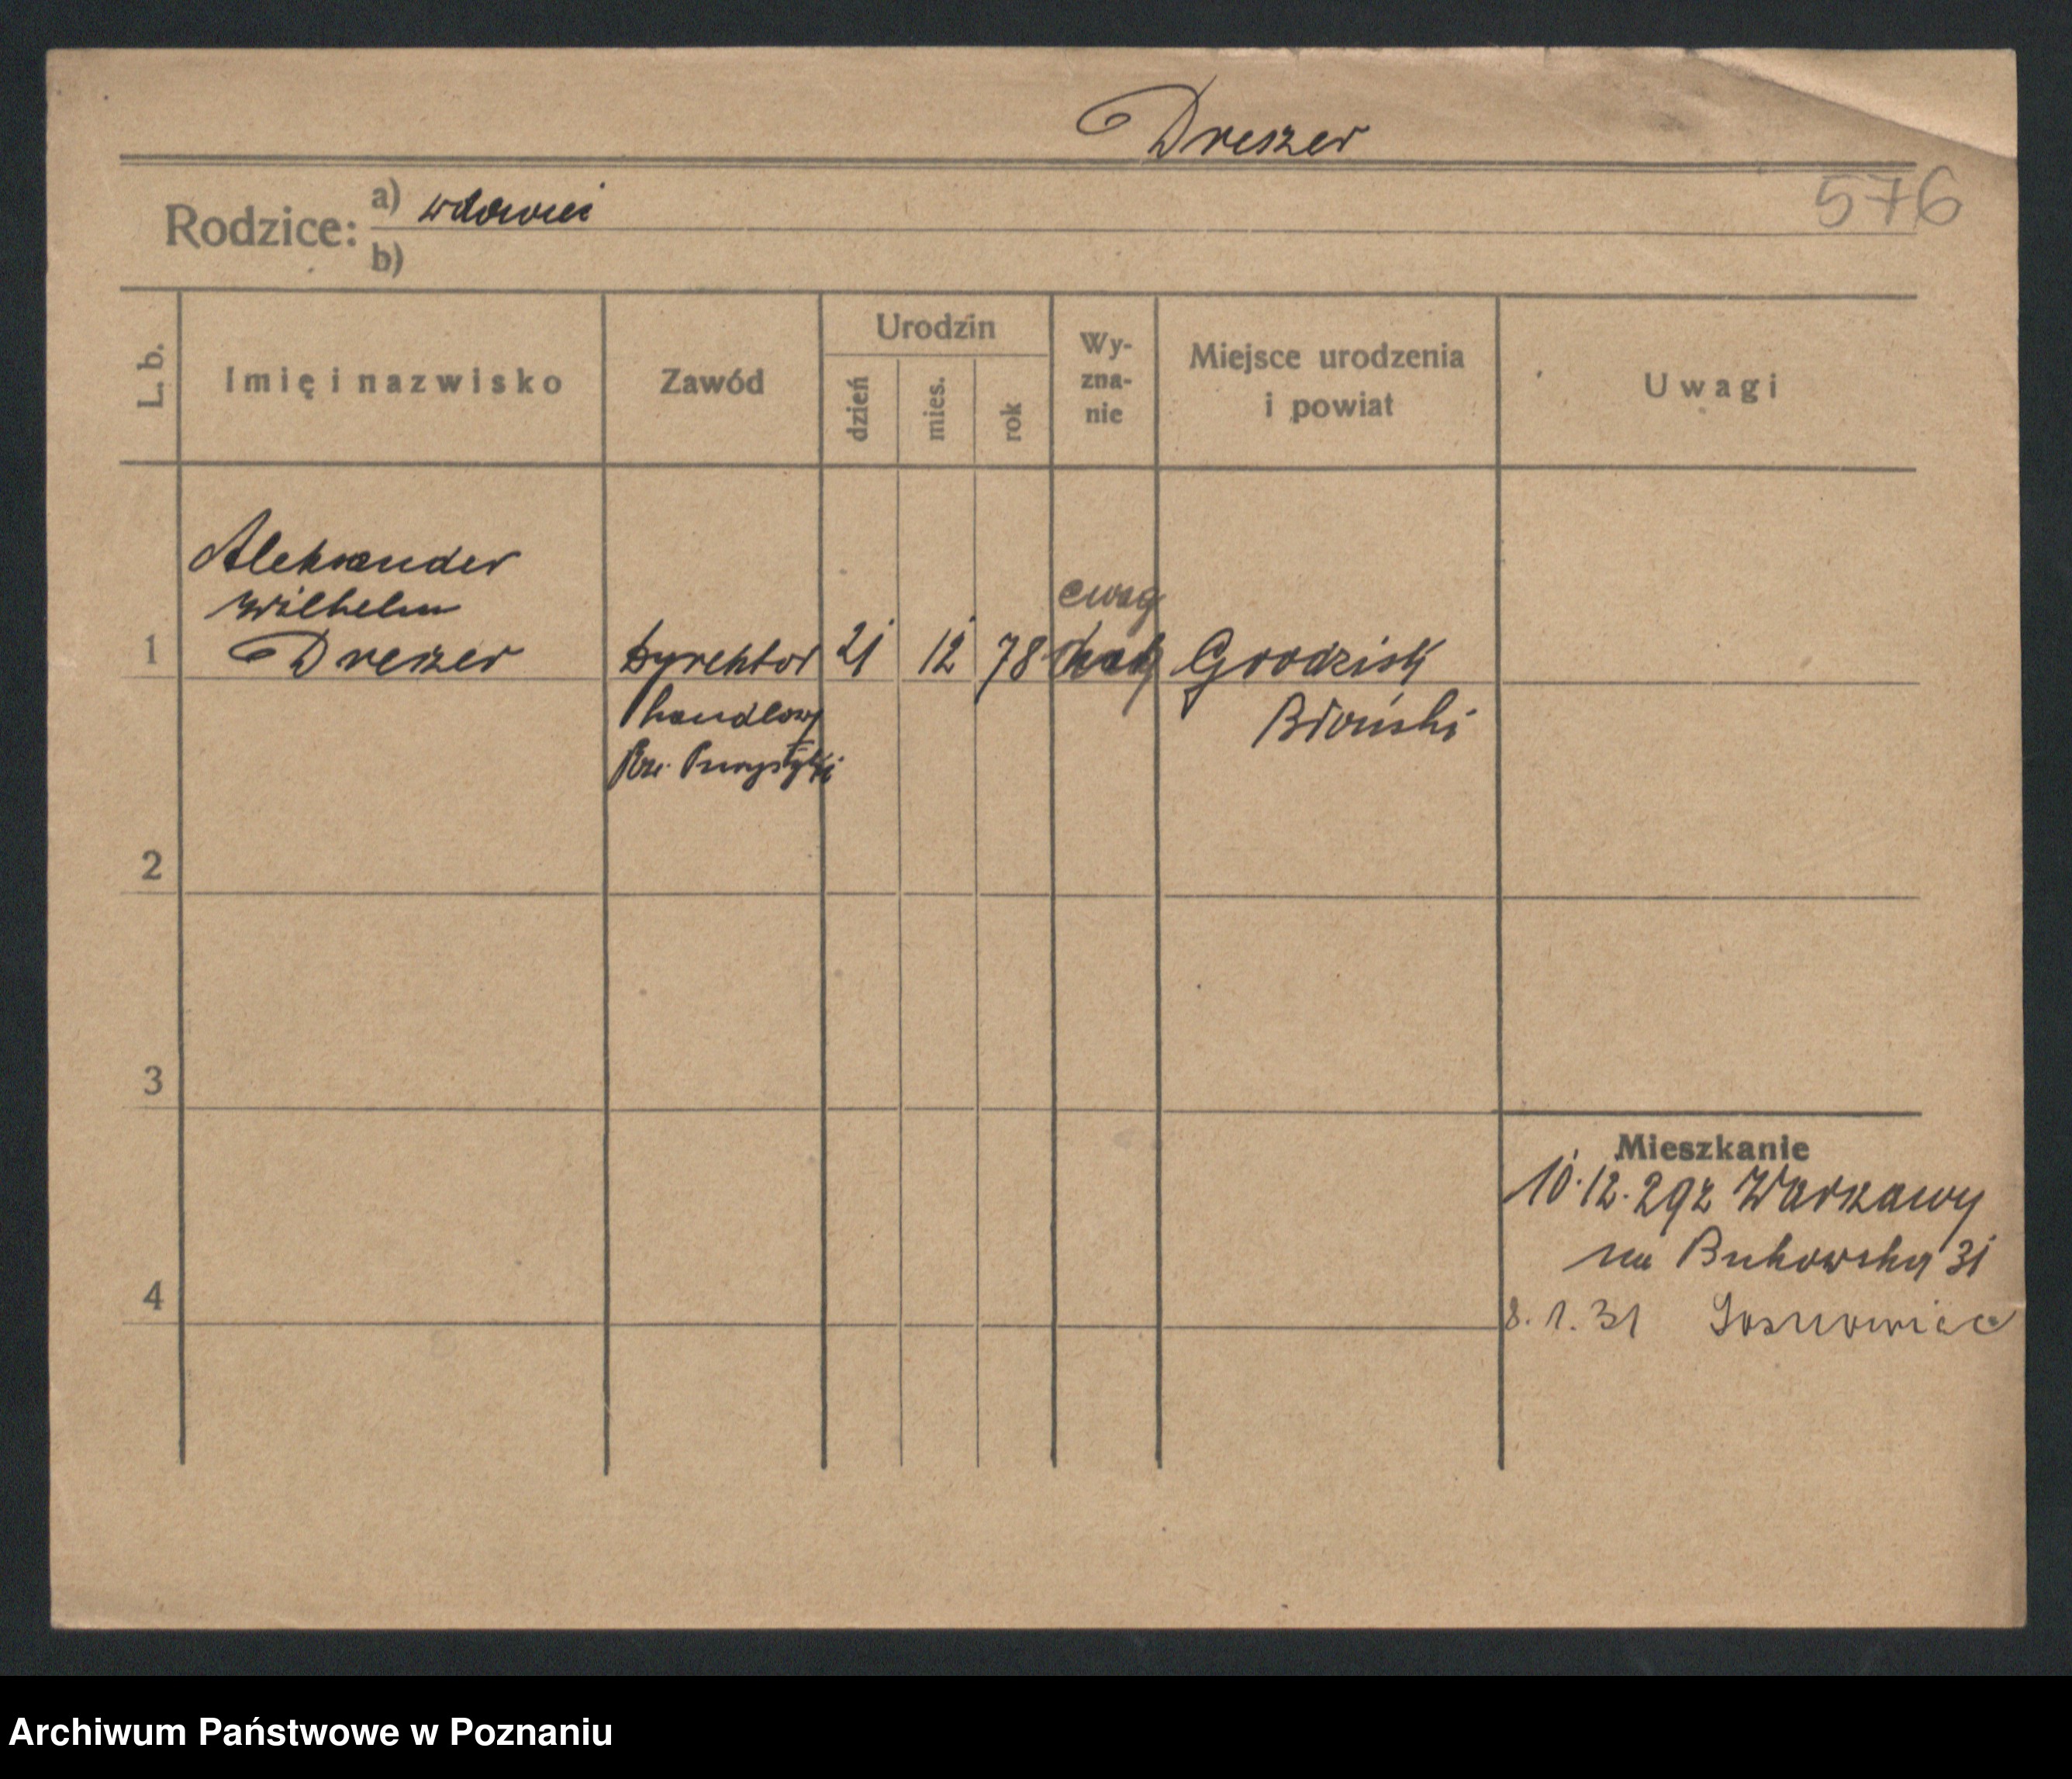 Dreszer
576
Rodzice: a) wdowiec
b)
L. b.
Imię i nazwisko
Zawód
Urodzin
dzień
mies.
rok
Wy-
zna-
nie
Miejsce urodzenia
i powiat
Uwagi
Aleksander
Wilhelm
ewag
1 Dreszer Dyrektor 21 12 78 Grodzisk
handlowy Błoński
2
3
4
Mieszkanie
10.12.29 z Warszawy
na Bukowską 31
8.1.31 Sosnowiec
Archiwum Państwowe w Poznaniu